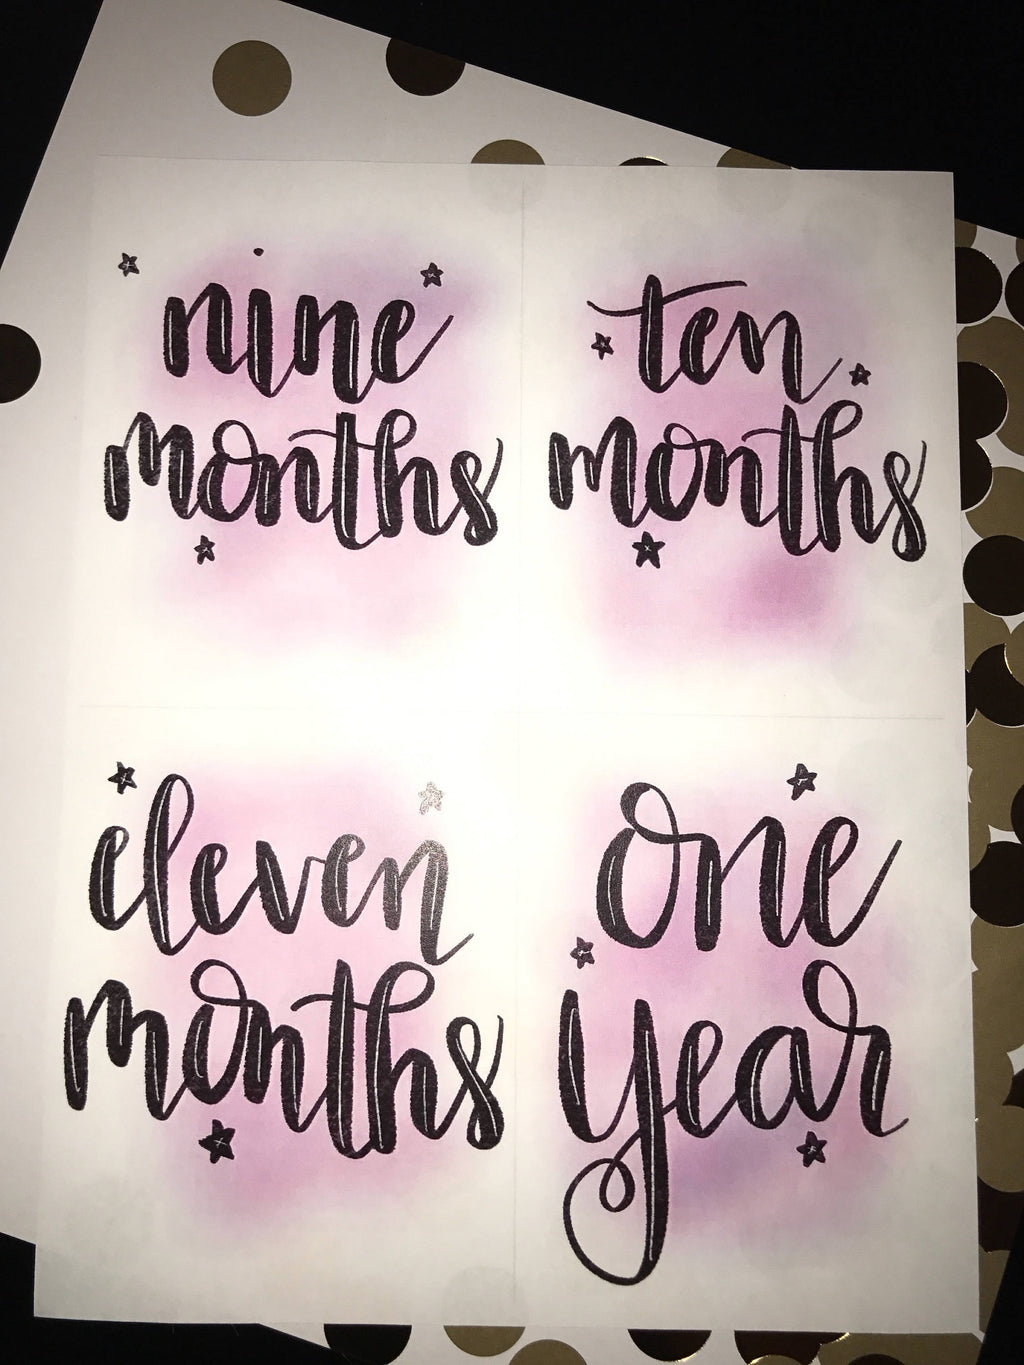 nine
months
ten
months
eleven
months
one
year